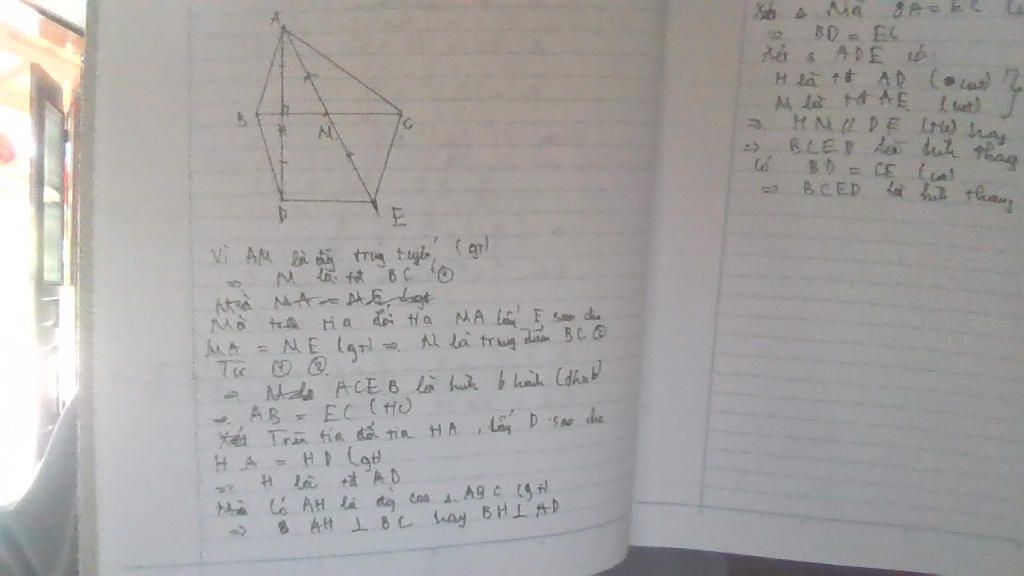 A
B
M
C
D
E
Vì AM là đg trung tuyến (gt)
⇒ M là tđ BC ①
Mà MA = ME
Mà trên tia đối tia MA lấy E sao cho
MA = ME (gt) ⇒ M là trung điểm BC ②
Từ ① ②
⇒ ACEB là hình b hành (dhnb)
⇒ AB = EC (t/c)
Trên tia đối tia HA, lấy D sao cho
HA = HD (gt)
⇒ H là tđ AD
Mà có AH là đg cao ABC (gt)
⇒ AH ⊥ BC hay BH ⊥ AD
Mà BA = EC
⇒ BD = EC
Xét ADE có
H là tđ AD (cmt)
M là tđ AE (cmt)
⇒ HM // DE (t/c) hay
⇒ BCED là hình thang
Có BD = CE (cmt
⇒ BCED là hình thang